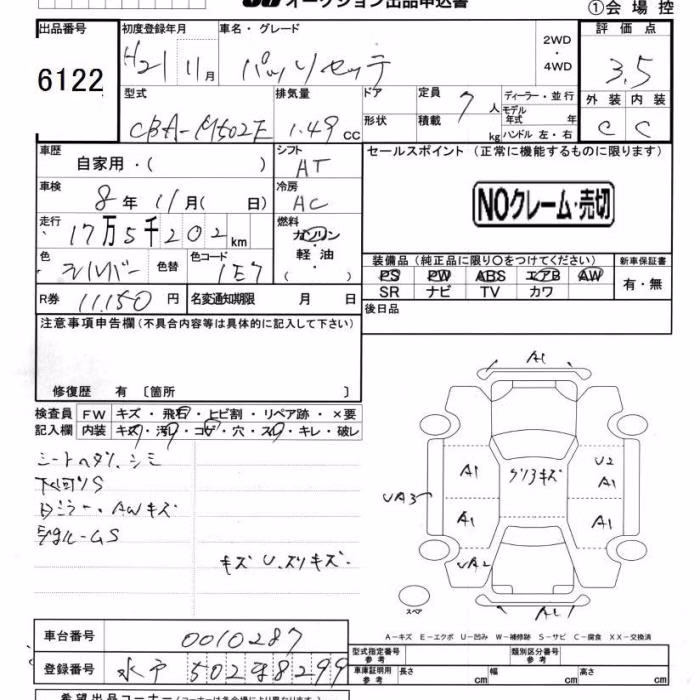 オークション出品申込書
①会場控
出品番号
6122
初度登録年月
H21 11月
車名・グレード
パッソセッテ
2WD
・
4WD
評価点
3.5
型式
CBA-M502E
排気量
1.49 cc
ドア
形状
定員
7 人
積載
kg
ディーラー・並行
モデル
年式 年
ハンドル 左・右
外装 内装
C C
車歴
自家用・( )
シフト
AT
車検
8年 11月( 日)
冷房
AC
走行
17万5千202km
燃料
ガソリン
軽油
( )
色
シルバー
色替
色コード
1E7
R券
11,150円
名変通知期限 月 日
セールスポイント (正常に機能するものに限ります)
NOクレーム・売切
装備品 (純正品に限り○をつけてください)
PS PW ABS エアB AW
SR ナビ TV カワ
新車保証書
有・無
後日品
注意事項申告欄 (不具合内容等は具体的に記入して下さい)
修復歴 有 〔箇所 〕
検査員
記入欄
FW キズ・飛石・ヒビ割・リペア跡・×要
内装 キズ・汚レ・コゲ・穴・スレ・キレ・破レ
シートヘタリ、シミ
下回りS
・AWキズ
キズ U.スリキズ.
A1
A1
グリ3キズ
U2
A1
UA3
A1
A1
UA2
A1
スペア
A-キズ E-エクボ U-凹み W-補修跡 S-サビ C-腐食 XX-交換済
車台番号
0010287
登録番号
水戸 502 8299
型式指定番号
参考
類別区分番号
参考
車庫証明用
参考
長さ cm
幅 cm
高さ cm
希望出品コーナー